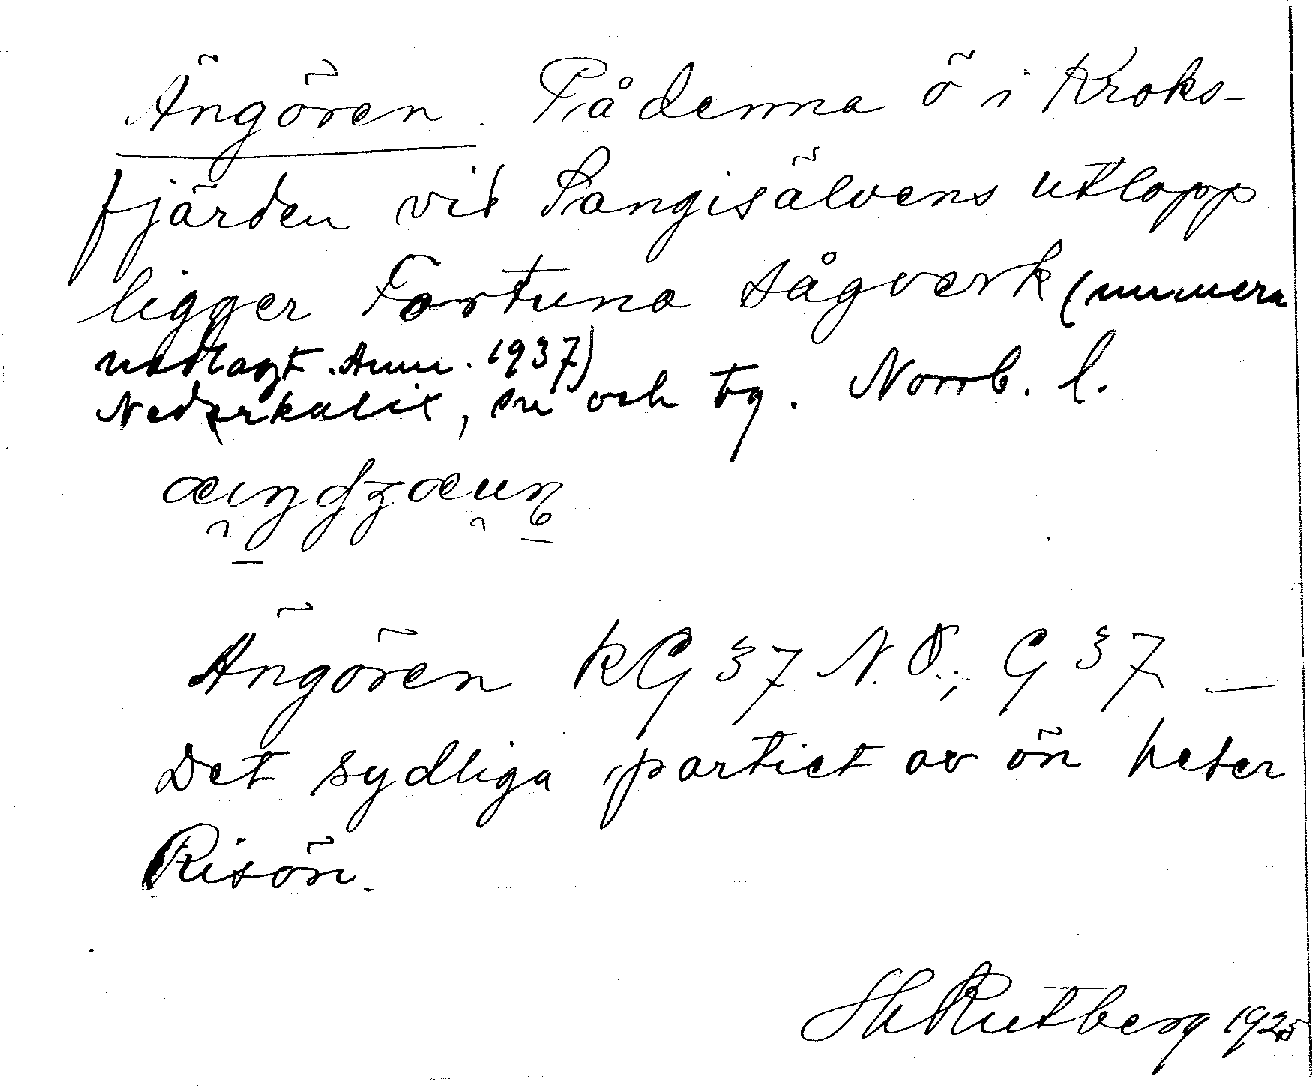 Ängören. På denna ö i Kroks-
fjärden vid Sangisälvens utlopp
ligger Fortuna sågverk (numera
nedlagt. Anm. 1937)
Nederkalix, sn och tg. Norrb. l.
Ängören KG 37 N.Ö.; G 37 —
Det sydliga partiet av ön heter
Risön.
Hl Rutberg 1925